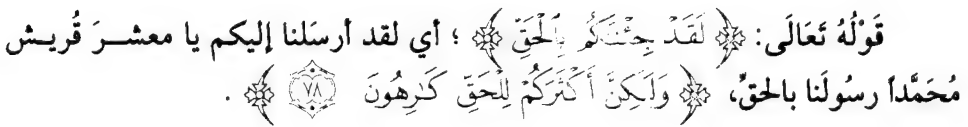 قَوْلُهُ تَعَالَى: ﴿لَقَدْ جِئْنَاكُم بِالْحَقِّ﴾ ؛ أي لقد أرسَلنا إليكم يا معشـــرَ قُريـــش
مُحَمَّداً رسُولَنا بالحقِّ، ﴿وَلَكِنَّ أَكْثَرَكُمْ لِلْحَقِّ كَارِهُونَ ٧٨﴾ .